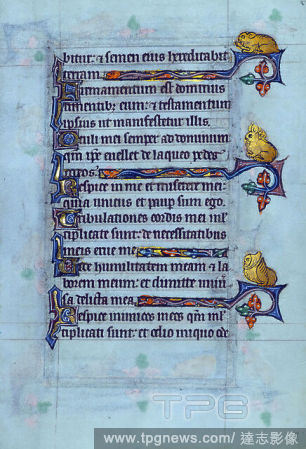 bitur: et semen eius hereditabit
terram
Firmamentum est dominus
timentibus eum: et testamentum
ipsius ut manifestetur illis.
Oculi mei semper ad dominum
qm ipe euellet de laqueo pedes
meos
Respice in me et miserere mei
quia unicus et paup sum ego.
Tribulationes cordis mei ml
tiplicate sunt: de necessitatibus
meis erue me
Vide humilitatem meam et la
borem meum: et dimitte uniu
sa delicta mea
Respice inimicos meos qm ml
tiplicati sunt: et odio iniquo ode
TPG
www.tpgnews.com/ 達志影像